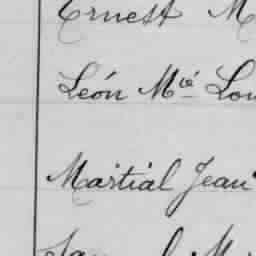 Ernest M
León Mié Lou
Martial Jean